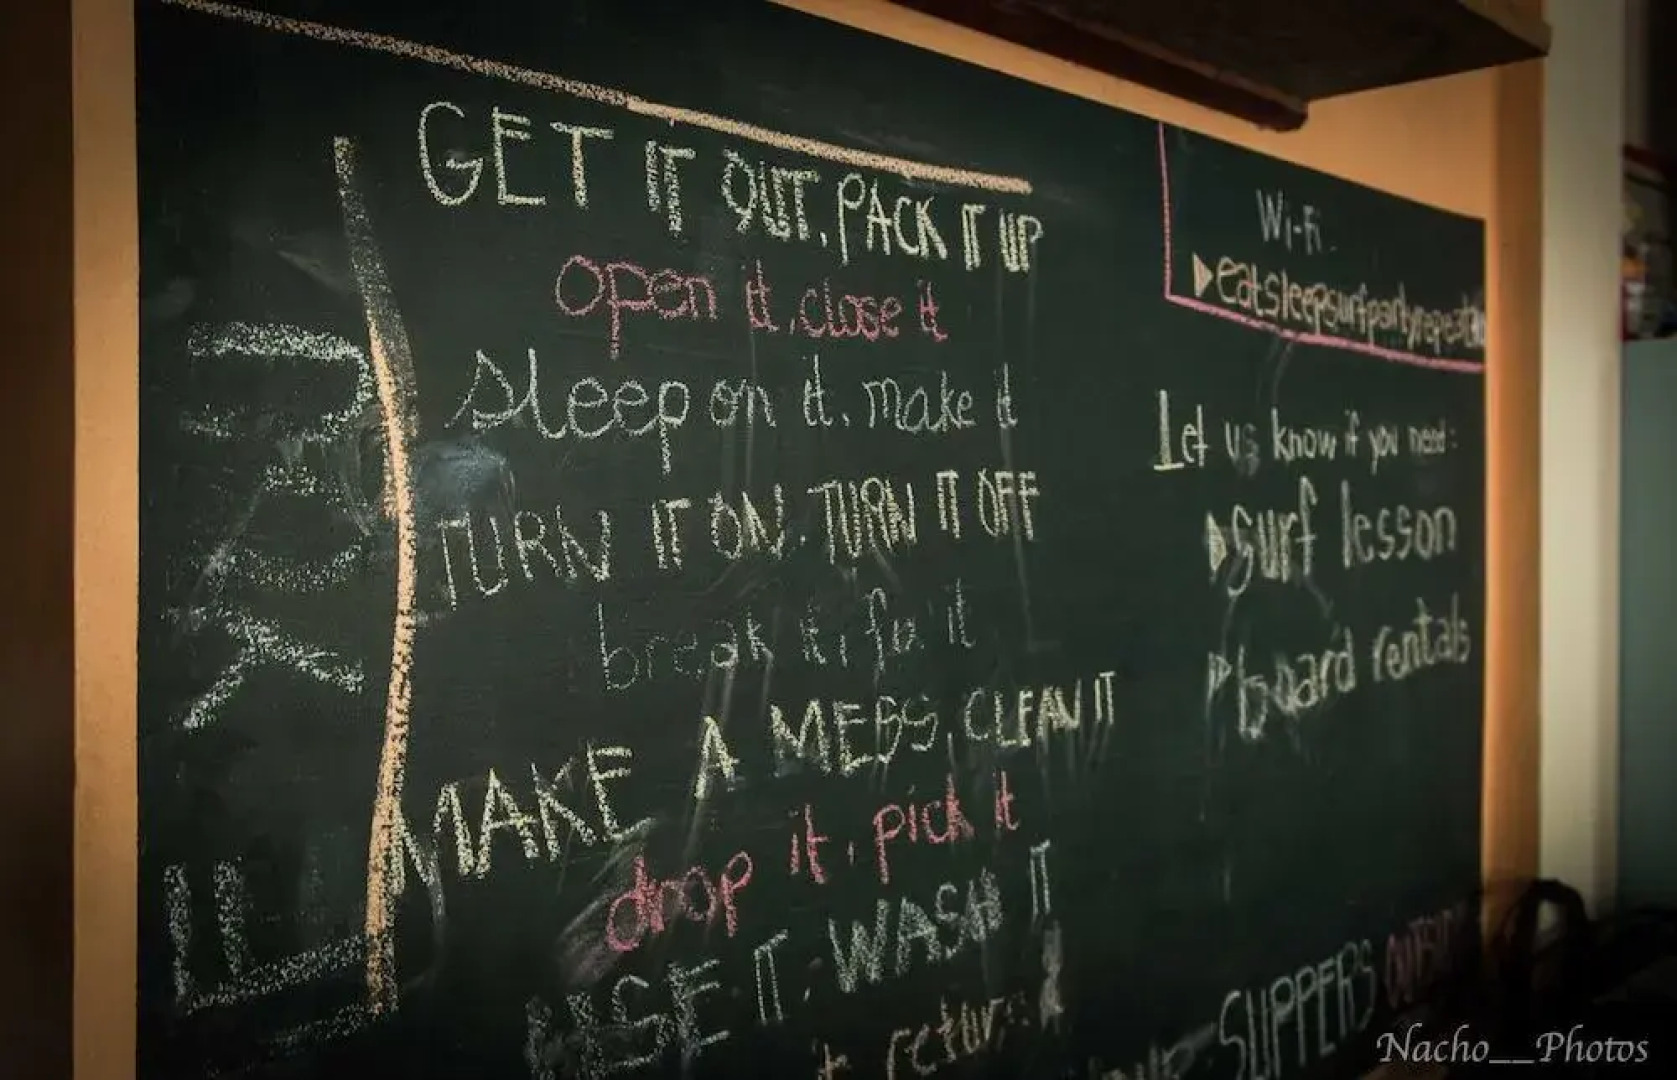 GET IT OUT, PACK IT UP
open it, close it
sleep on it, make it
TURN IT ON. TURN IT OFF
break it, fix it
MAKE A MESS, CLEAN IT
drop it, pick it
USE IT, WASH IT
it return
Wi-Fi
eatsleepsurfpartyrepeat
Let us know if you need:
surf lesson
board rentals
SLIPPERS
Nacho__Photos